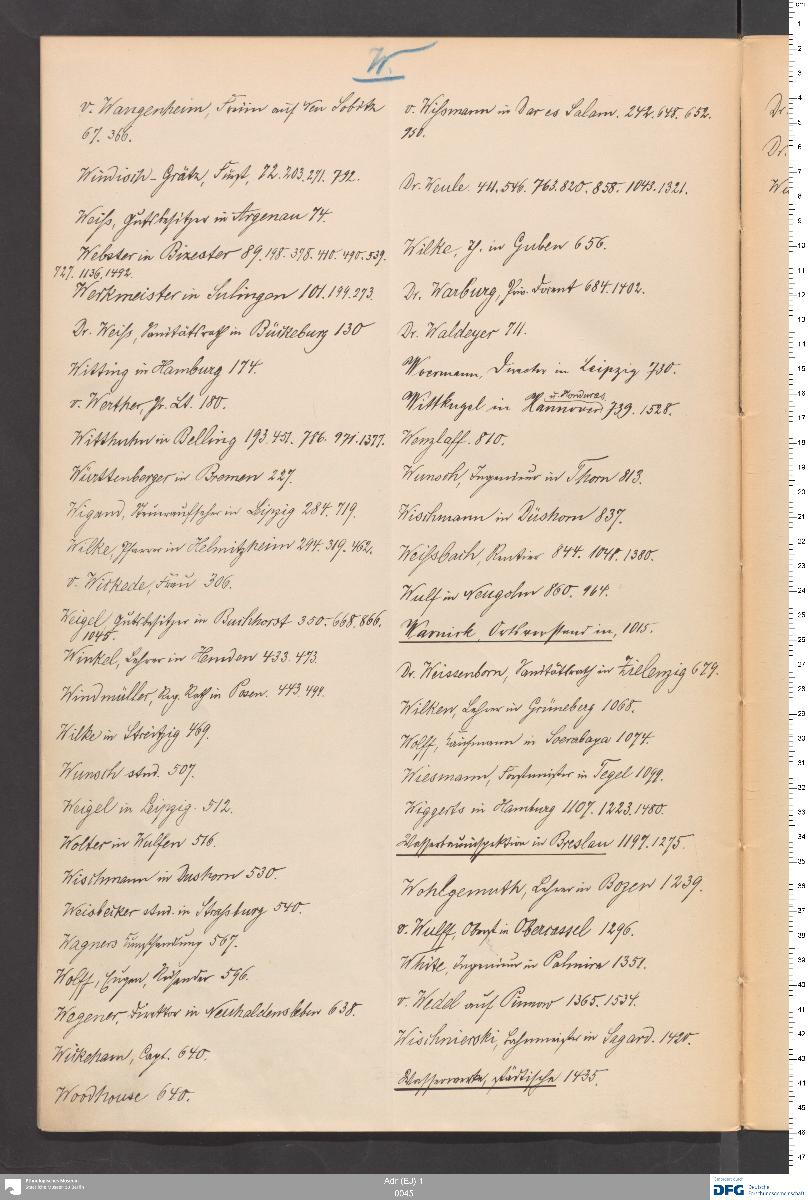 W.
v. Wangenheim, Freiin auf Neu Lobitz
67. 366.
Windisch-Grätz, Fürst, 72. 203. 271. 792.
Weiß, Gutsbesitzer in Argenau 74.
Webster in Bicester 89. 198. 378. 410. 490. 539.
727. 1136. 1492.
Werkmeister in Sulingen 101. 199. 273.
Dr. Weiß, Sanitätsrath in Bückeburg 130
Witting in Hamburg 174.
v. Werther, Pr. Lt. 180.
Witthuhn in Belling 193. 451. 786. 971. 1377.
Württenberger in Bremen 227.
Wigand, Steueraufseher in Leipzig 284. 719.
Wilke, Pfarrer in Helmitzheim 294. 319. 462.
v. Wickede, Frau 306.
Weigel, Gutsbesitzer in Buchhorst 350. 668. 866.
1045.
Winkel, Lehrer in Hemden 433. 473.
Windmüller, Reg. Rath in Posen. 443. 499.
Wilke in Streitzig 469.
Wunsch stud. 507.
Weigel in Leipzig. 512.
Wolter in Wulfen 516.
Wischmann in Dushorn 530.
Weisbecker stud. in Straßburg 540.
Wagners Kunsthandlung 567.
Wolff, Eugen, Reisender 596.
Wegener, Direktor in Neuhaldensleben 638.
Wickeham, Capt. 640.
Woodhouse 640.
v. Wißmann in Dar es Salam. 242. 648. 652.
950.
Dr. Weule. 411. 546. 763. 820. 858. 1043. 1321.
Wilke, H. in Guben 656.
Dr. Warburg, Priv. Docent 684. 1402.
Dr. Waldeyer 711.
Woermann, Director in Leipzig 730.
u. Honduras
Wittkugel in Hannover 739. 1528.
Wenzlaff. 810.
Wunsch, Ingenieur in Thorn 813.
Wischmann in Düshorn 837.
Weißbach, Rentier 844. 1048. 1380.
Wulf in Neugolm 860. 964.
Warnick, Ortsvorstand in, 1015.
Dr. Weissenborn, Sanitätsrath in Zielenzig 679.
Wilken, Lehrer in Grüneberg 1068.
Wolff, Kaufmann in Soerabaya 1074.
Wiesmann, Forstmeister in Tegel 1099.
Wiggerts in Hamburg 1107. 1223. 1480.
Wasserbauinspektion in Breslau 1197. 1275.
Wohlgemuth, Lehrer in Bozen 1239.
v. Wulff, Oberst in Obercassel 1296.
White, Ingenieur in Palmira 1351.
v. Wedel auf Pumow 1365. 1534.
Wischnierski, Bahnmeister in Sagard. 1420.
Wasserwerke, städtische 1435.
Dr.
Dr.
Adr (EJ) 1
0045
Ethnologisches Museum
Staatliche Museen zu Berlin
DFG Deutsche
Forschungsgemeinschaft